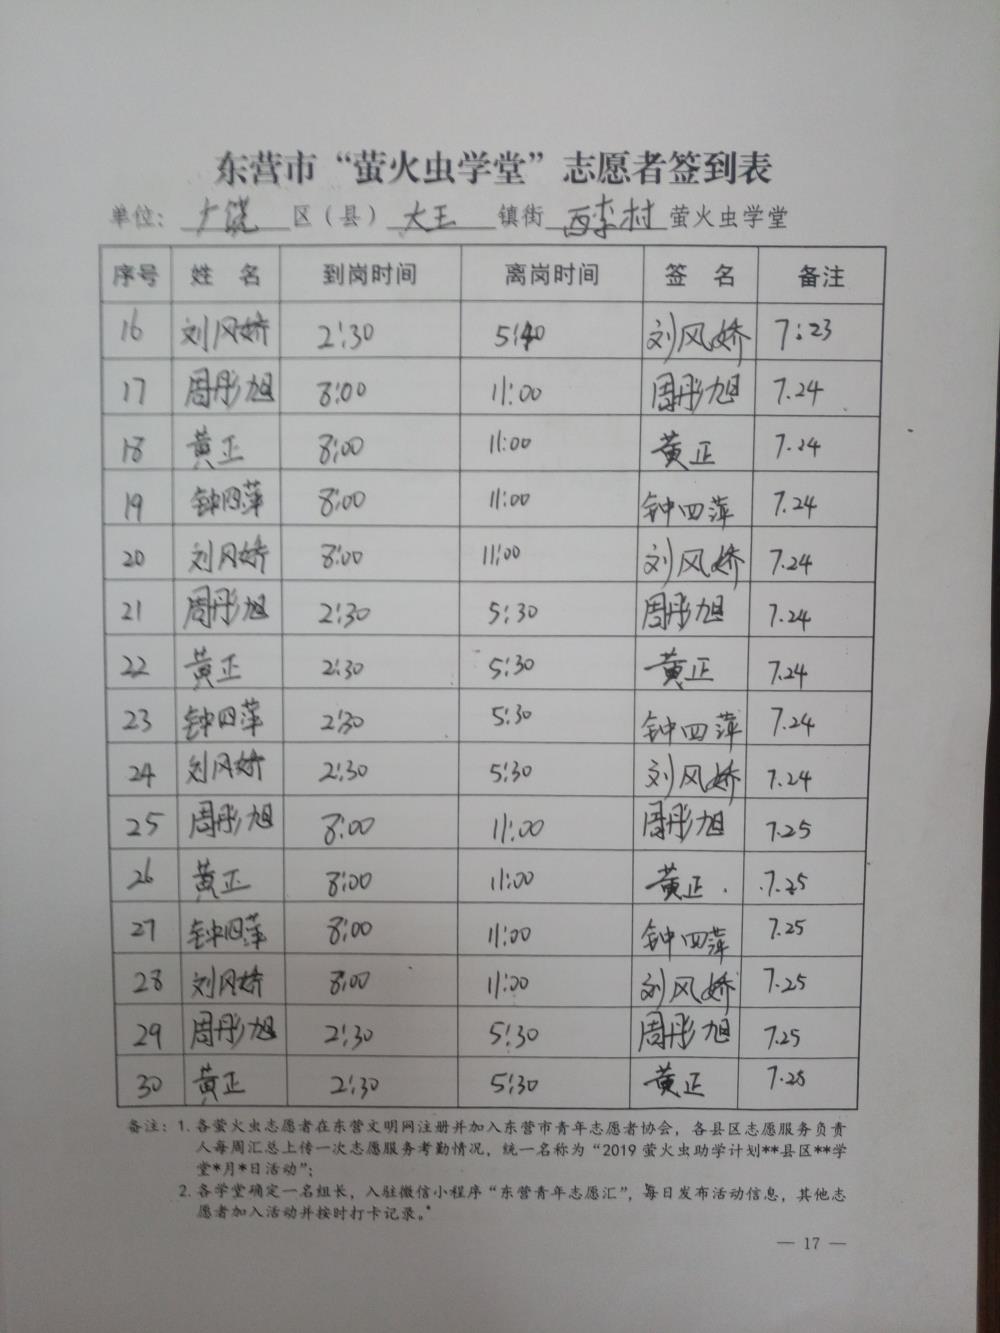 东营市“萤火虫学堂”志愿者签到表
单位：广饶区（县）大王镇街西李村萤火虫学堂
序号 姓 名 到岗时间 离岗时间 签 名 备注
16 刘风娇 2:30 5:40 刘风娇 7:23
17 周彤旭 8:00 11:00 周彤旭 7.24
18 黄正 8:00 11:00 黄正 7.24
19 钟四萍 8:00 11:00 钟四萍 7.24
20 刘风娇 8:00 11:00 刘风娇 7.24
21 周彤旭 2:30 5:30 周彤旭 7.24
22 黄正 2:30 5:30 黄正 7.24
23 钟四萍 2:30 5:30 钟四萍 7.24
24 刘风娇 2:30 5:30 刘风娇 7.24
25 周彤旭 8:00 11:00 周彤旭 7.25
26 黄正 8:00 11:00 黄正 7.25
27 钟四萍 8:00 11:00 钟四萍 7.25
28 刘风娇 8:00 11:00 刘风娇 7.25
29 周彤旭 2:30 5:30 周彤旭 7.25
30 黄正 2:30 5:30 黄正 7.25
备注：1. 各萤火虫志愿者在东营文明网注册并加入东营市青年志愿者协会，各县区志愿服务负责
人每周汇总上传一次志愿服务考勤情况，统一名称为“2019 萤火虫助学计划**县区**学
堂*月*日活动”；
2. 各学堂确定一名组长，入驻微信小程序“东营青年志愿汇”，每日发布活动信息，其他志
愿者加入活动并按时打卡记录。
— 17 —